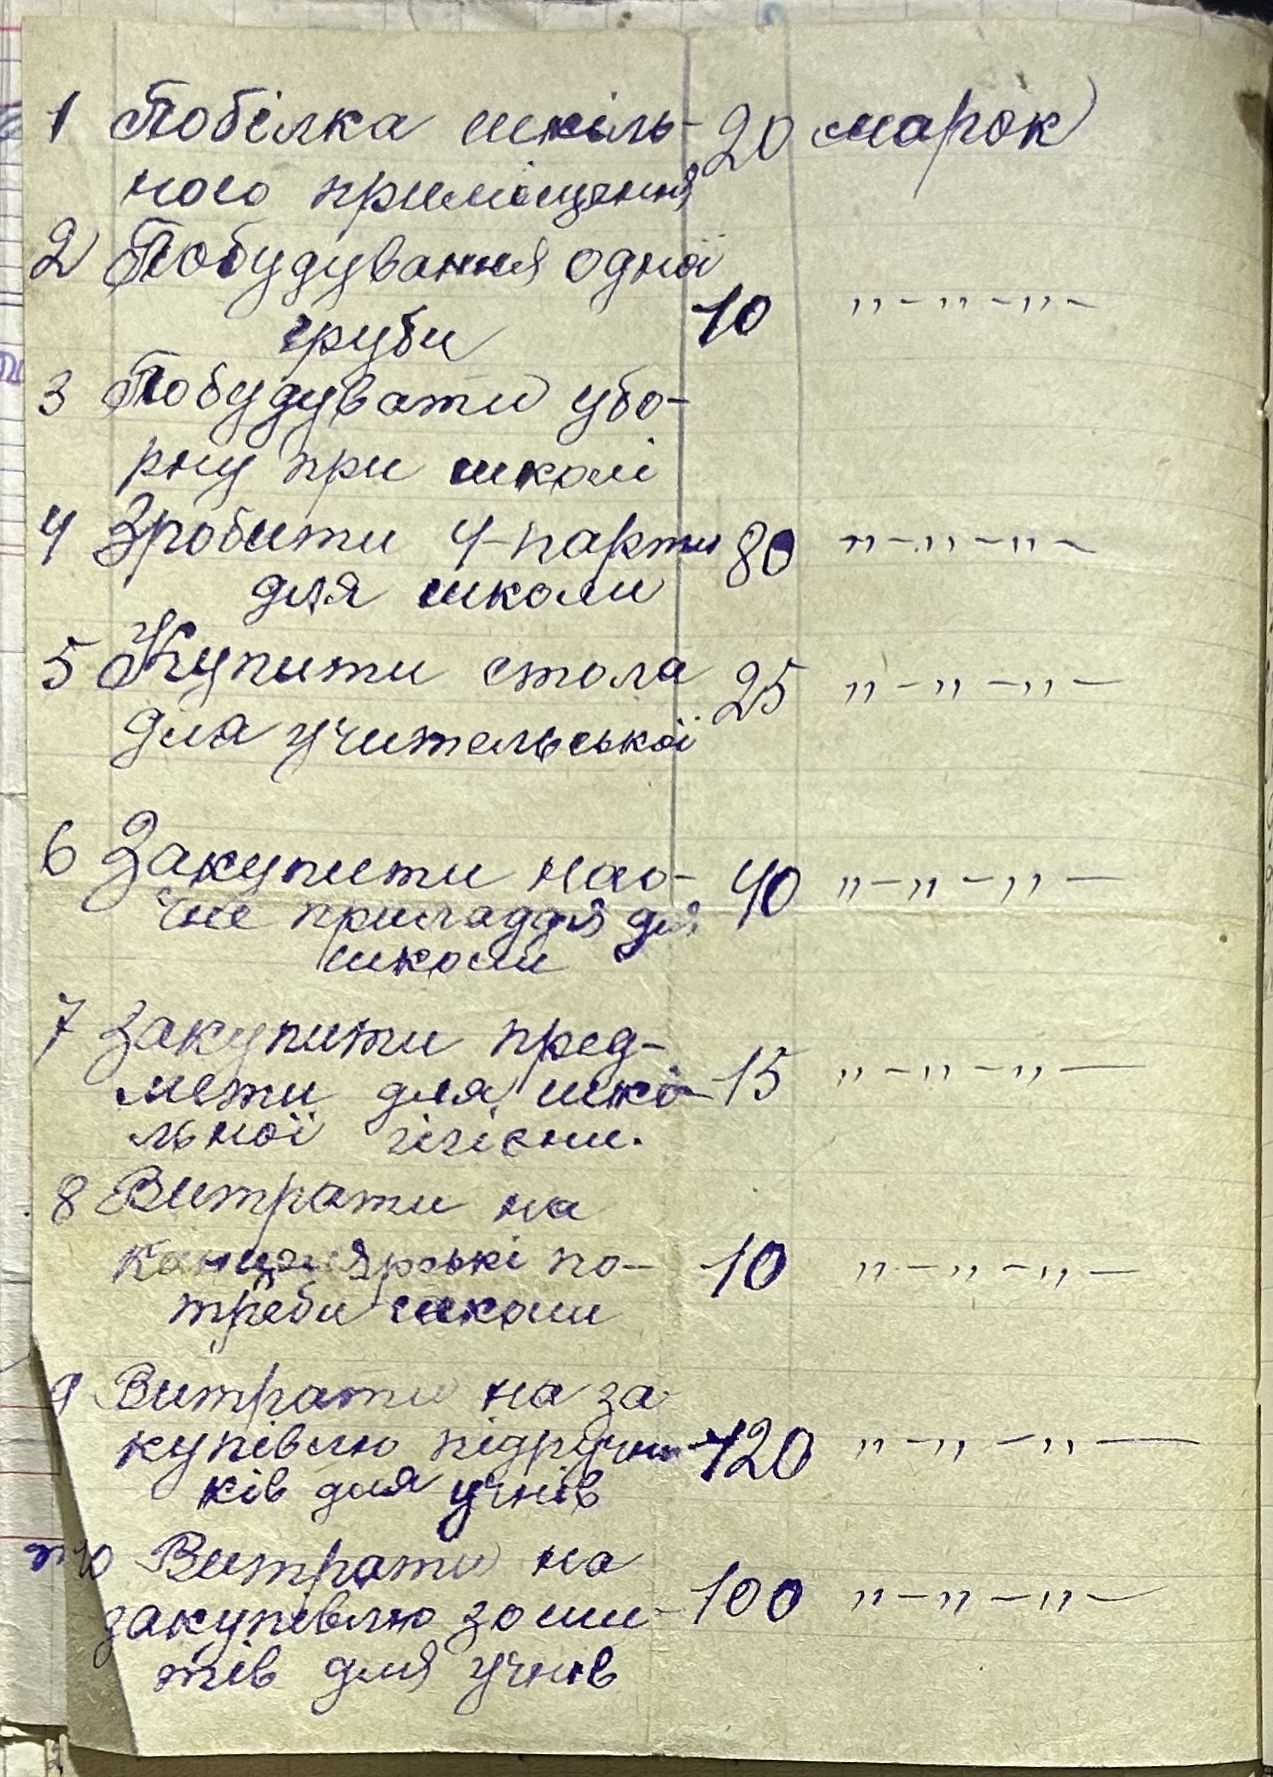 1 Побілка шкіль- 20 марок
ного приміщення
2 Побудування одної
груби 10 „ - „ - „ -
3 Побудувати убо-
рну при школі
4 Зробити 4-парти 80 „ - „ - „ -
для школи
5 Купити стола 25 „ - „ - „ -
для учительської
6 Закупити нао- 40 „ - „ - „ -
чне приладдя для
школи
7 Закупити пред-
мети для шкі- 15 „ - „ - „ -
льної гігієни.
8 Витрати на
канцелярські по- 10 „ - „ - „ -
треби школи
9 Витрати на за-
купівлю підручни- 120 „ - „ - „ -
ків для учнів
10 Витрати на
закупівлю зоши- 100 „ - „ - „ -
тів для учнів